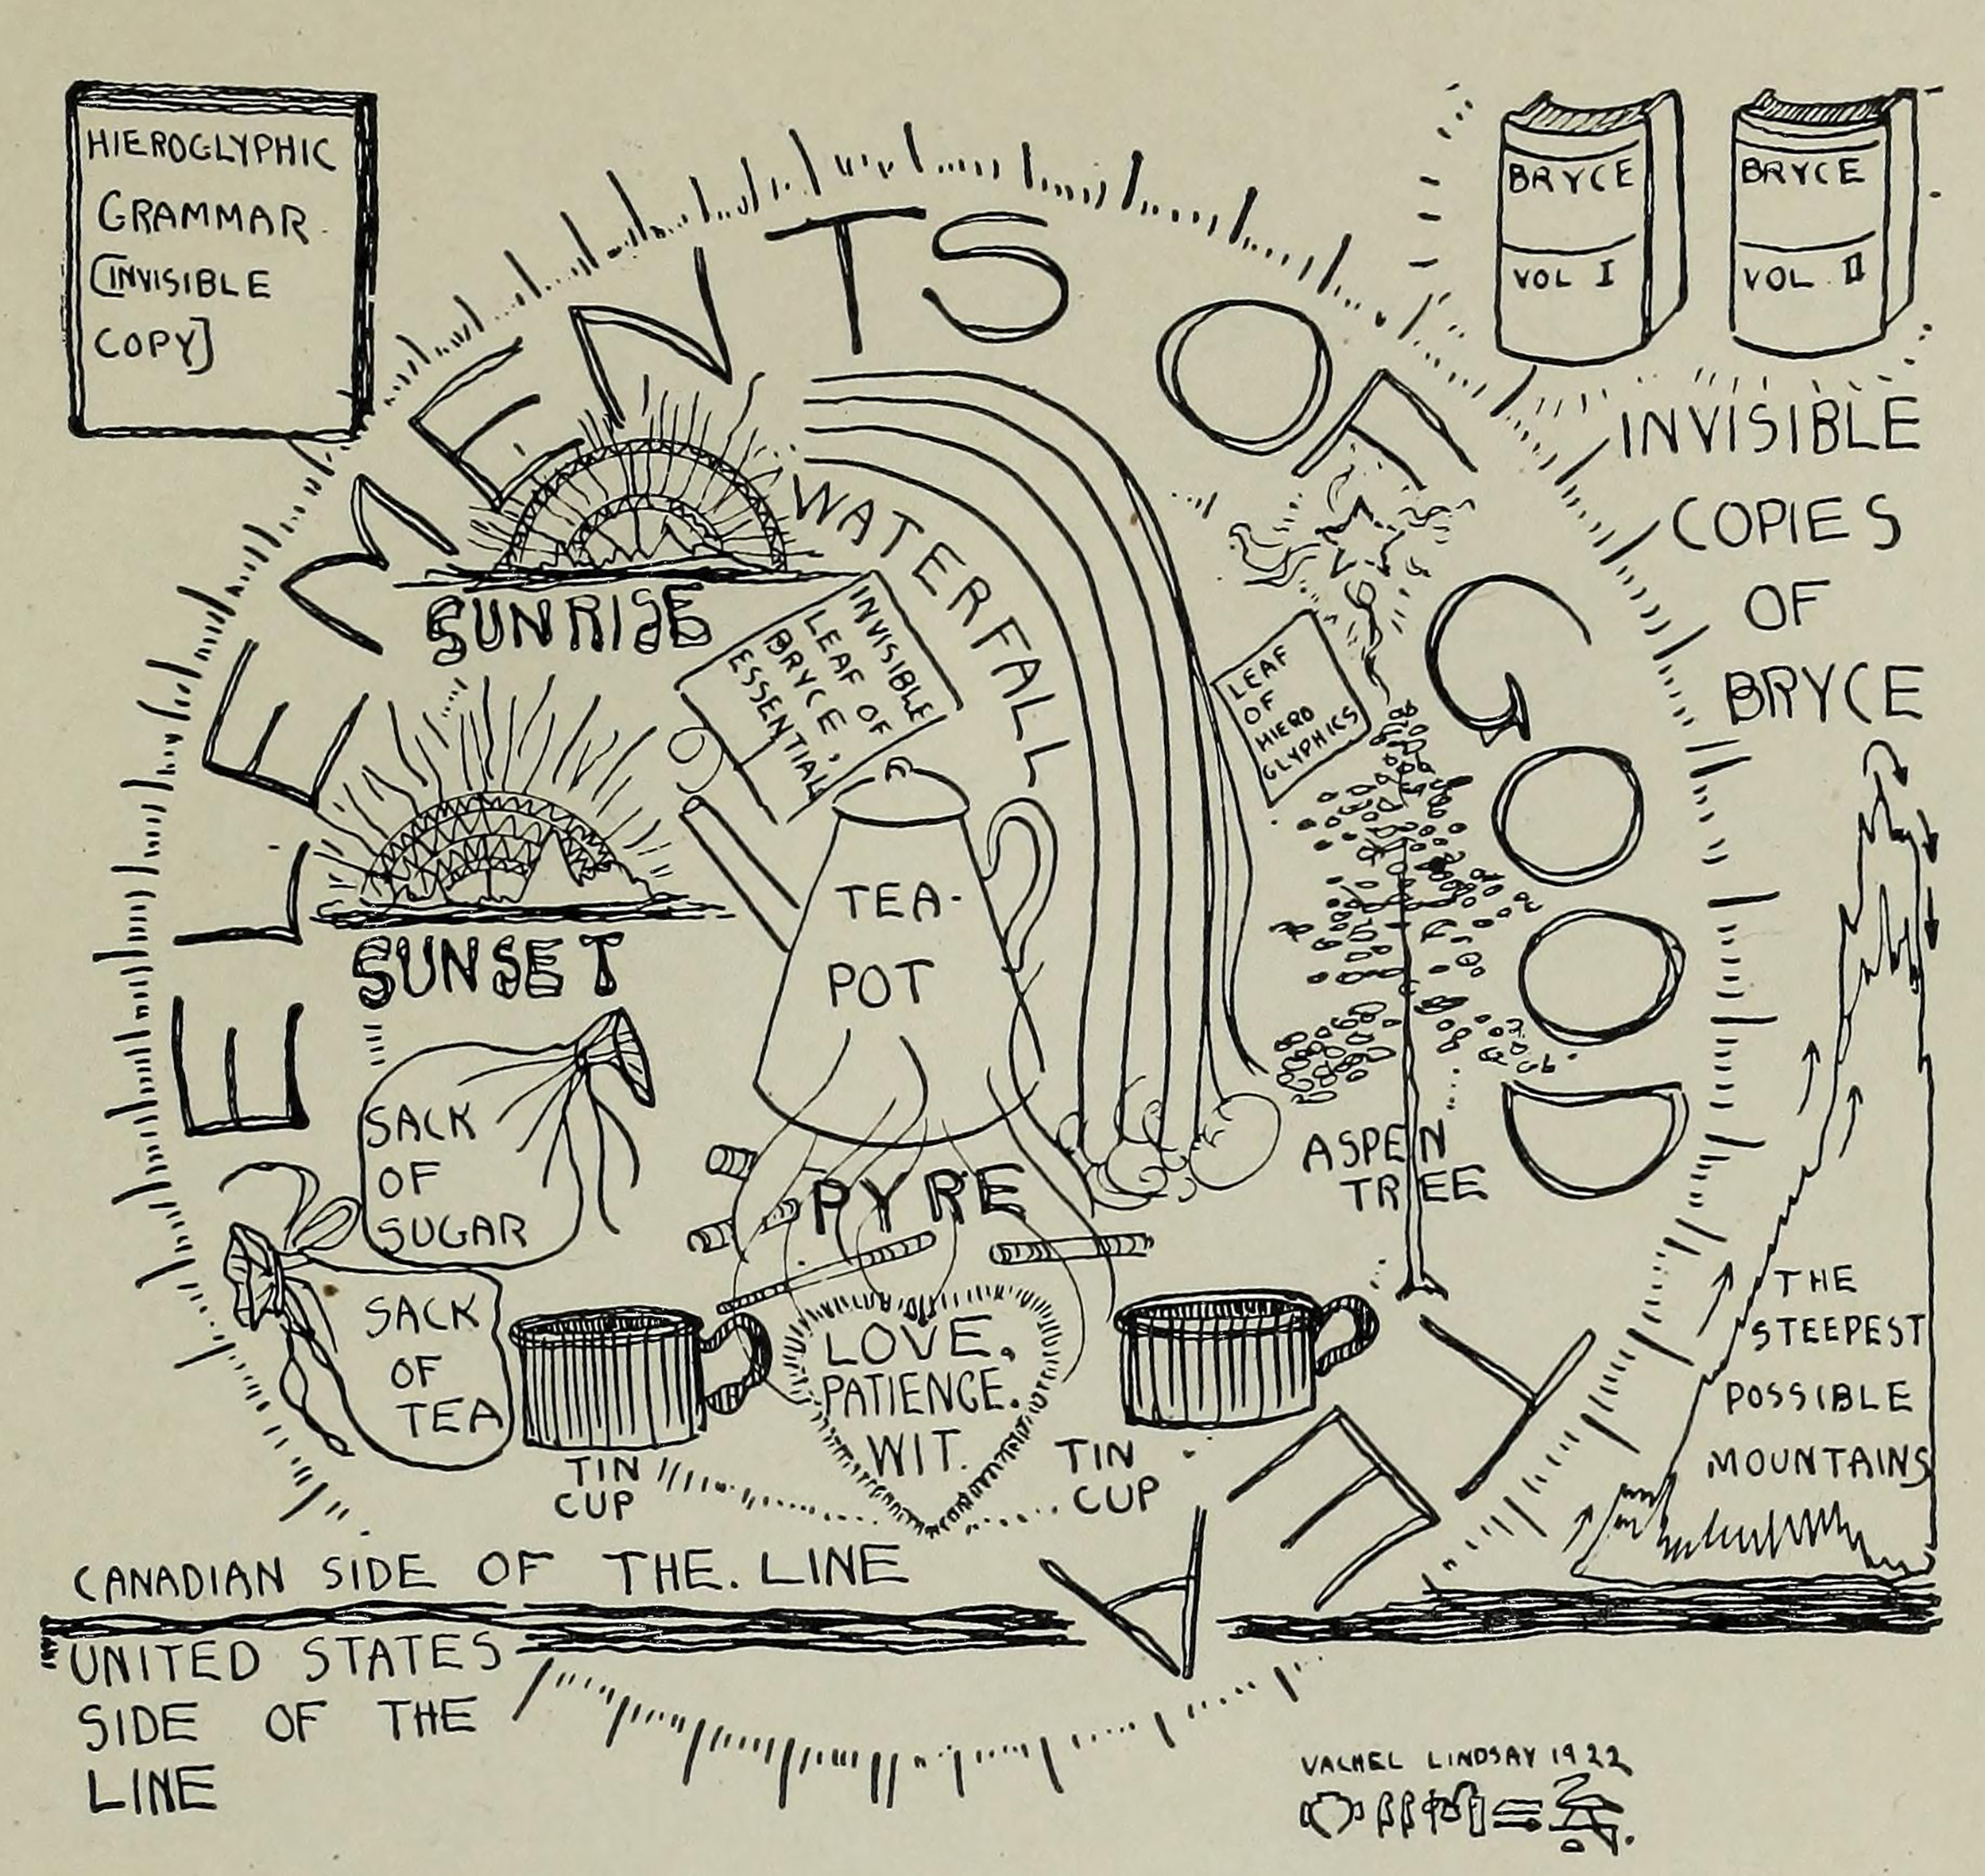 HIEROGLYPHIC
GRAMMAR
[INVISIBLE
COPY]
BRYCE
VOL I
BRYCE
VOL. II
INVISIBLE
COPIES
OF
BRYCE
ELEMENTS OF GOOD TEA
SUNRISE
WATERFALL
INVISIBLE
LEAF OF
BRYCE,
ESSENTIAL
LEAF
OF
HIERO
GLYPHICS
SUNSET
TEA-
POT
SACK
OF
SUGAR
PYRE
ASPEN
TREE
SACK
OF
TEA
LOVE,
PATIENCE.
WIT.
TIN
CUP
TIN
CUP
THE
STEEPEST
POSSIBLE
MOUNTAINS
CANADIAN SIDE OF THE. LINE
UNITED STATES
SIDE OF THE
LINE
VACHEL LINDSAY 1922